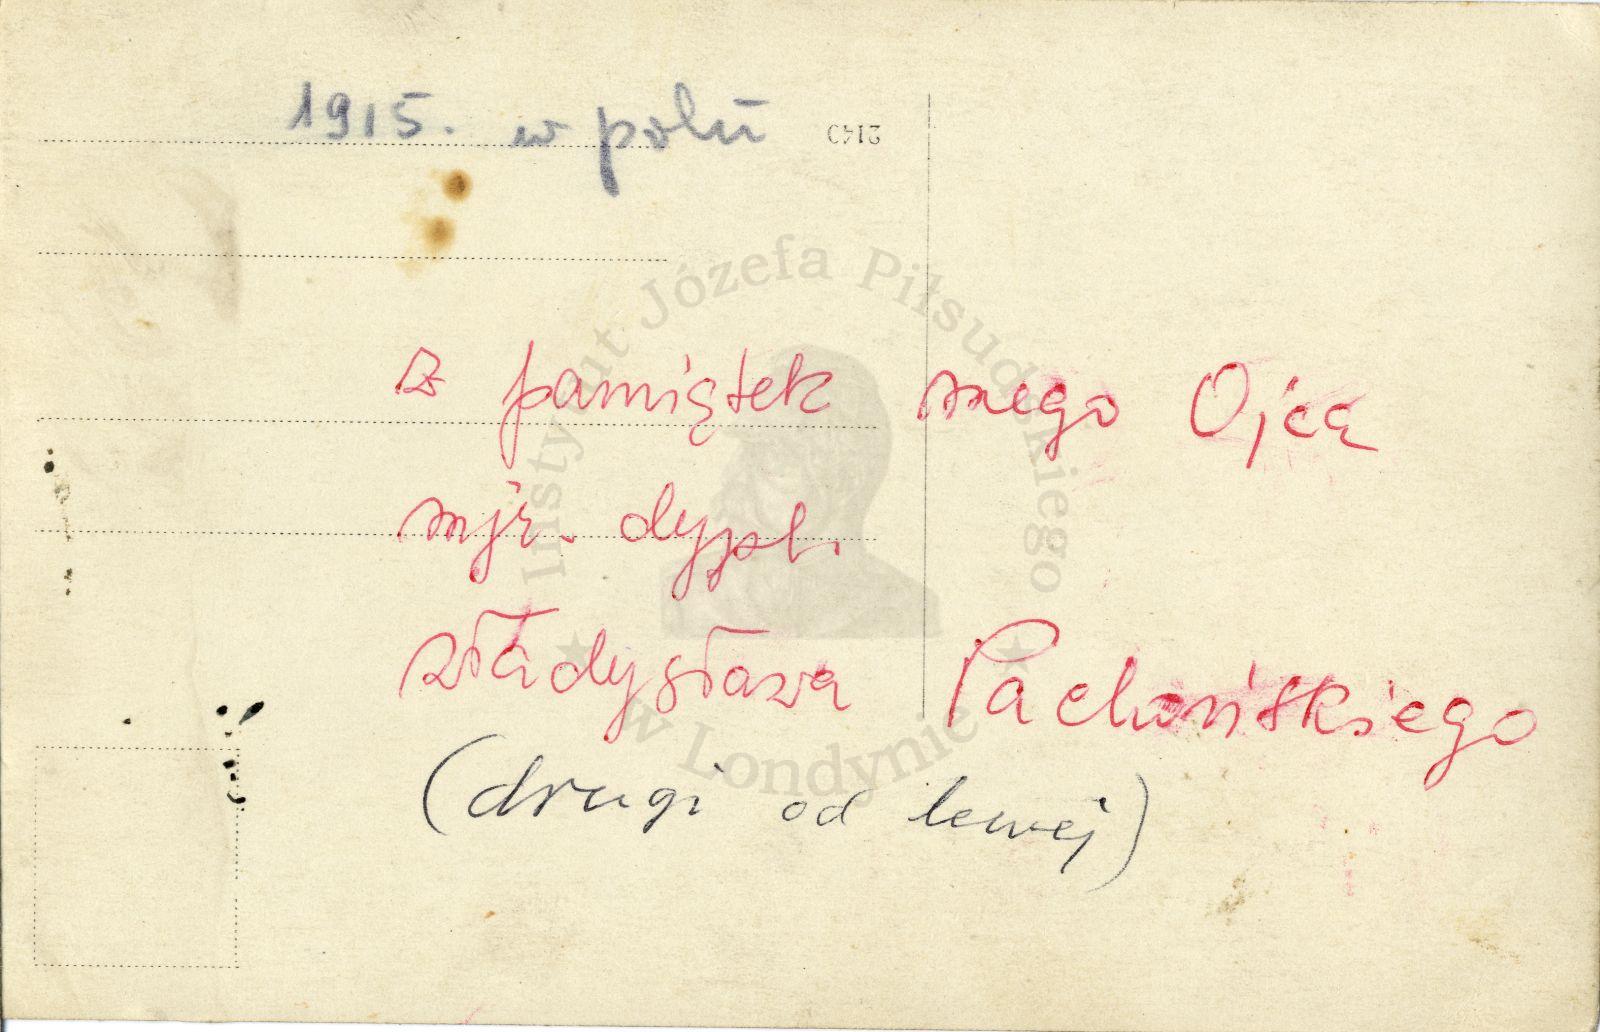 1915. w polu
2140
z pamiątek mego Ojca
mjr. dypl.
Władysława Pachońskiego
(drugi od lewej)
Instytut Józefa Piłsudskiego
w Londynie